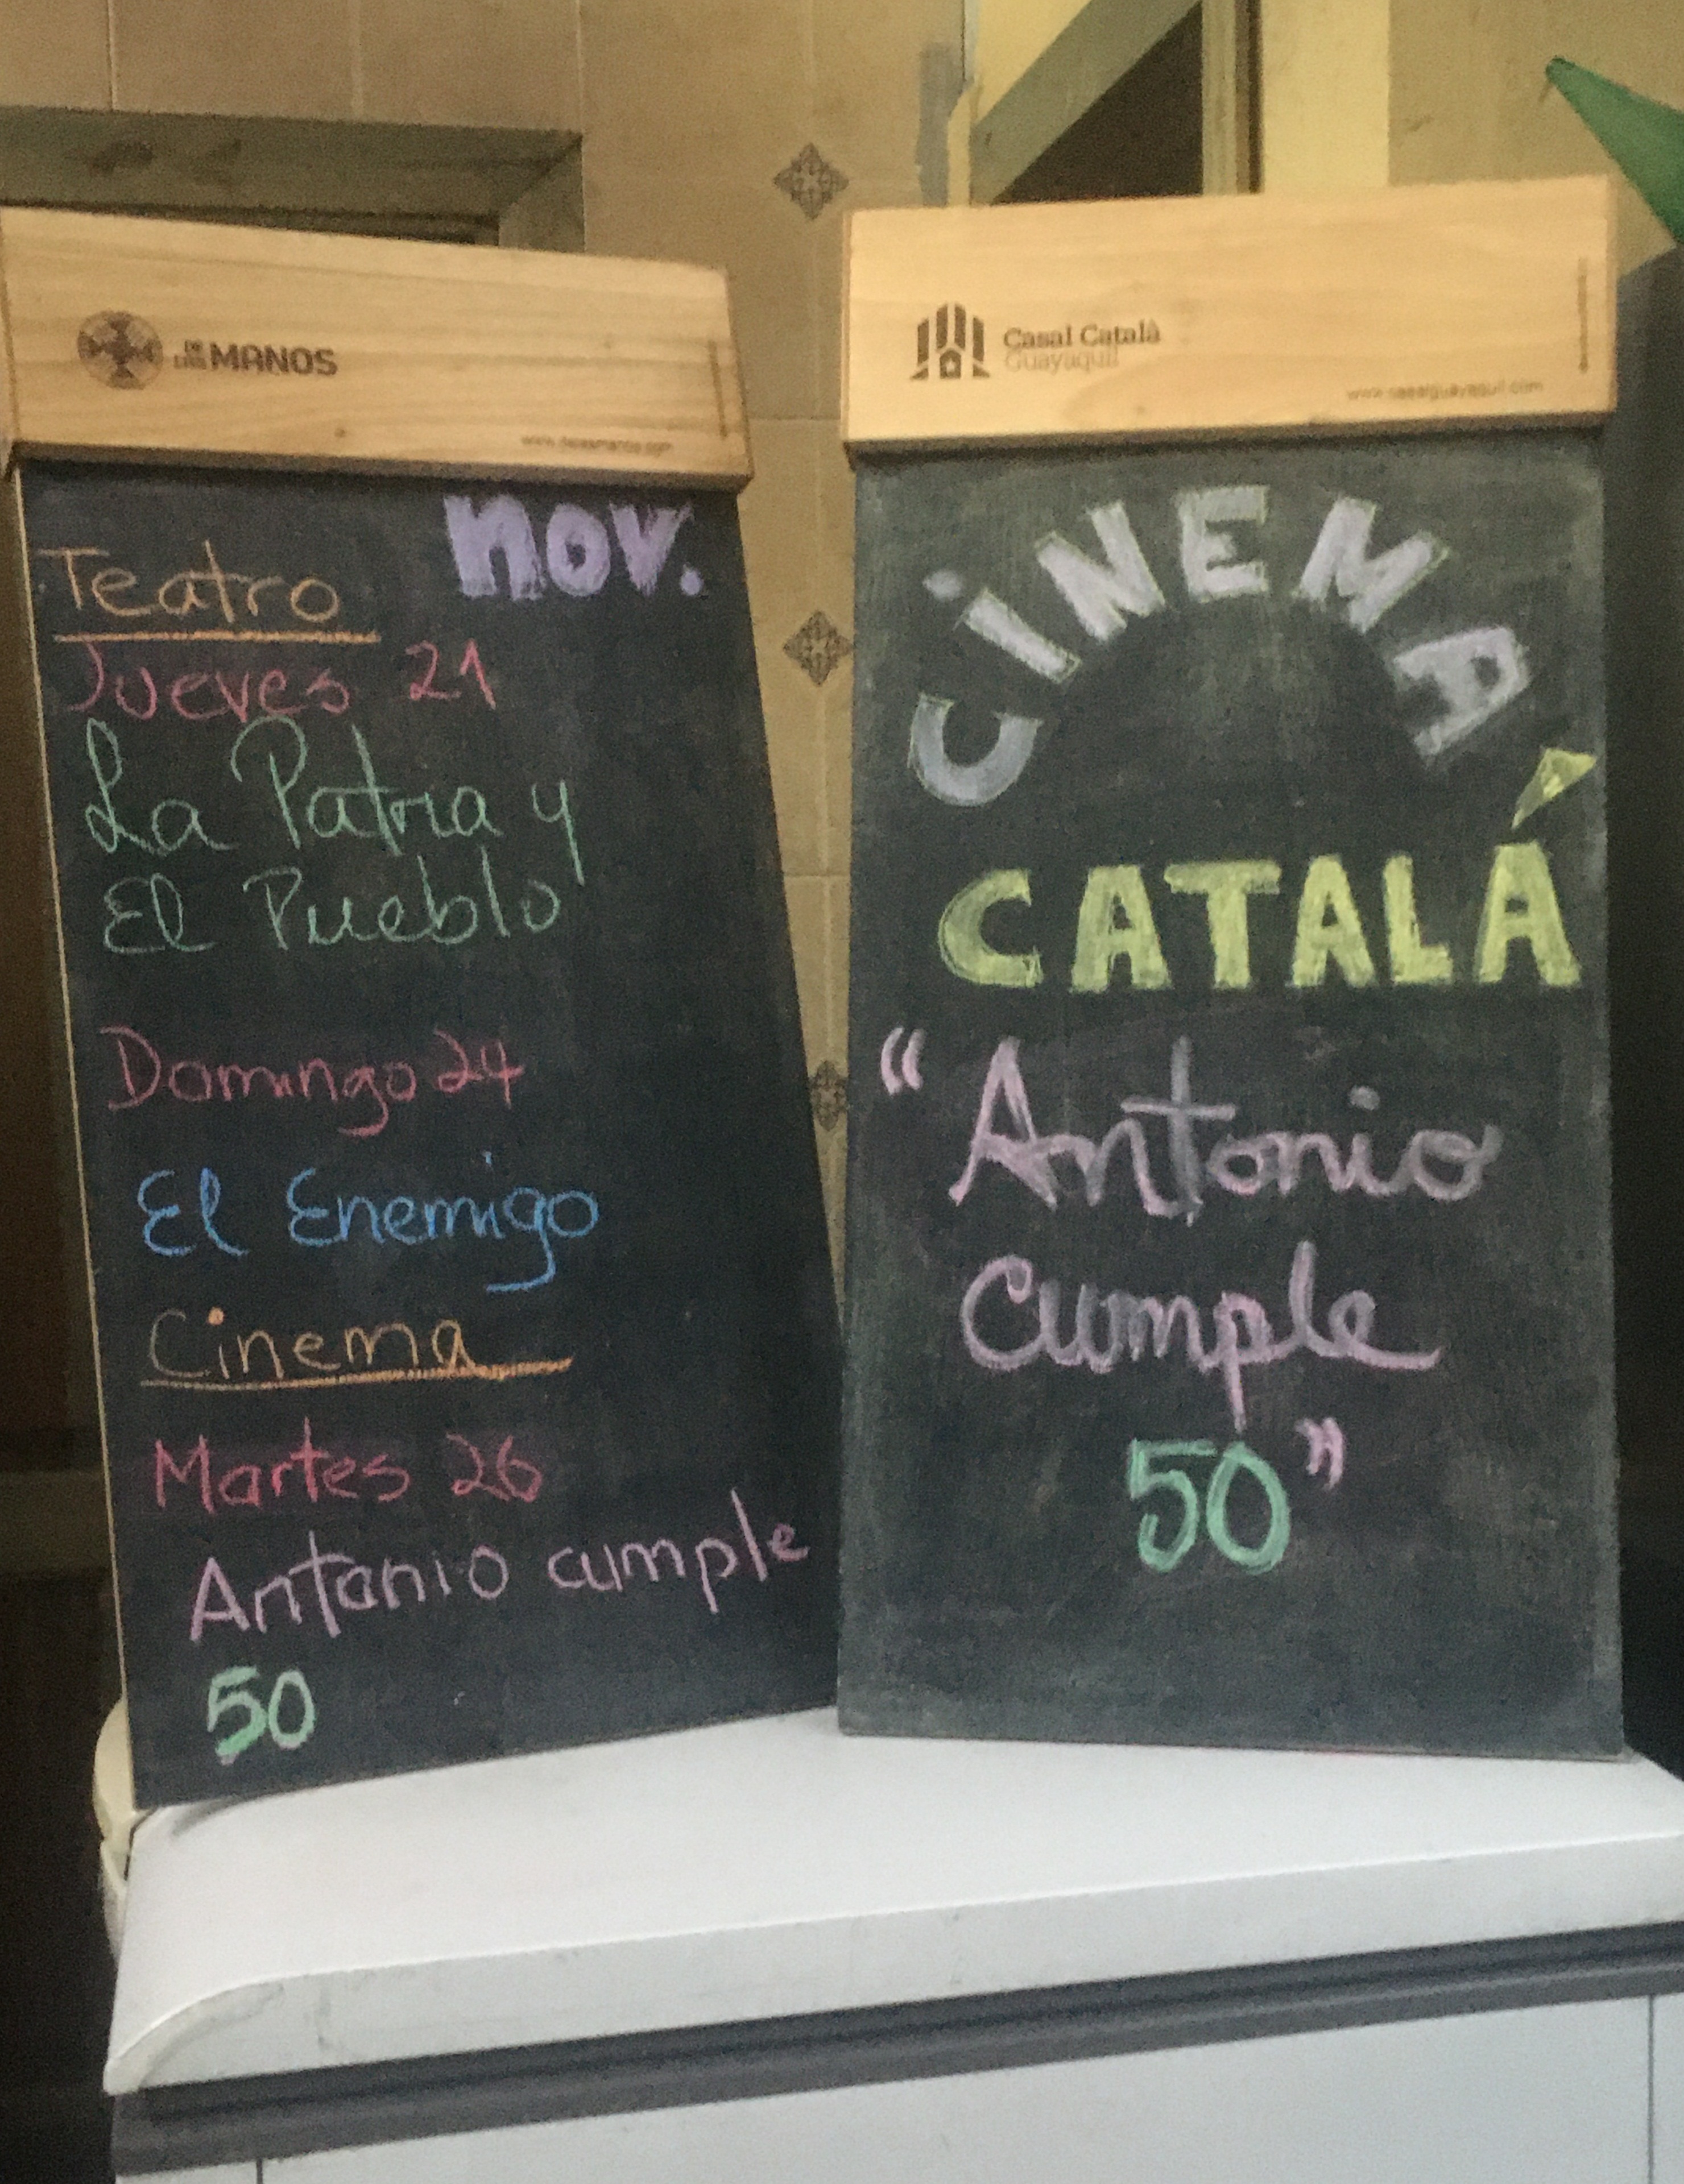 DE LAS MANOS
www.delasmanos.org
nov.
Teatro
Jueves 21
La Patria y
El Pueblo
Domingo 24
El Enemigo
Cinema
Martes 26
Antonio cumple
50
Casal Català
Guayaquil
www.casalguayaquil.com
CiNEMA
CATALÁ
“Antonio
Cumple
50”